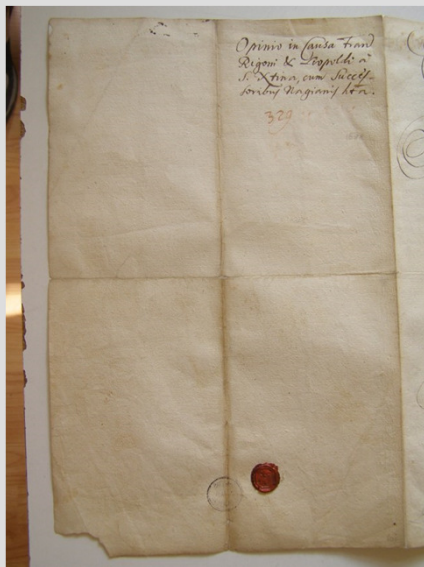 Opinio in Causa Franc
Rigoni & Leopoldi à
S. Xtina, cum Succes-
soribus Nagianis
329